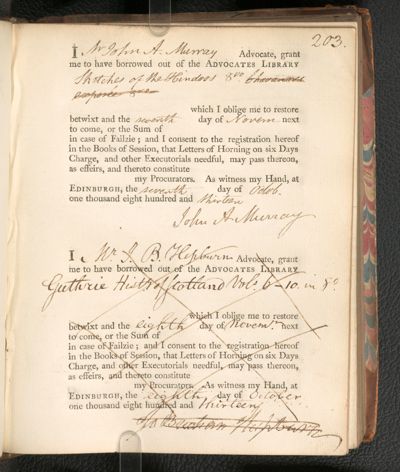 203.
I, Mr John A. Murray Advocate, grant
me to have borrowed out of the ADVOCATES LIBRARY
Sketches of the Hindoos 8vo
which I oblige me to restore
betwixt and the seventh day of Novem next
to come, or the Sum of
in case of Failzie; and I consent to the registration hereof
in the Books of Session, that Letters of Horning on six Days
Charge, and other Executorials needful, may pass thereon,
as effeirs, and thereto constitute
my Procurators. As witness my Hand, at
EDINBURGH, the seventh day of Octob.
one thousand eight hundred and thirteen
John A Murray
I, Mr J. B. Hepburn Advocate, grant
me to have borrowed out of the ADVOCATES LIBRARY
Guthrie Hist. of Scotland Vols. 6-10. in 8o.
which I oblige me to restore
betwixt and the eighth day of Novem. next
to come, or the Sum of
in case of Failzie; and I consent to the registration hereof
in the Books of Session, that Letters of Horning on six Days
Charge, and other Executorials needful, may pass thereon,
as effeirs, and thereto constitute
my Procurators. As witness my Hand, at
EDINBURGH, the eighth day of October
one thousand eight hundred and thirteen
Hepburn